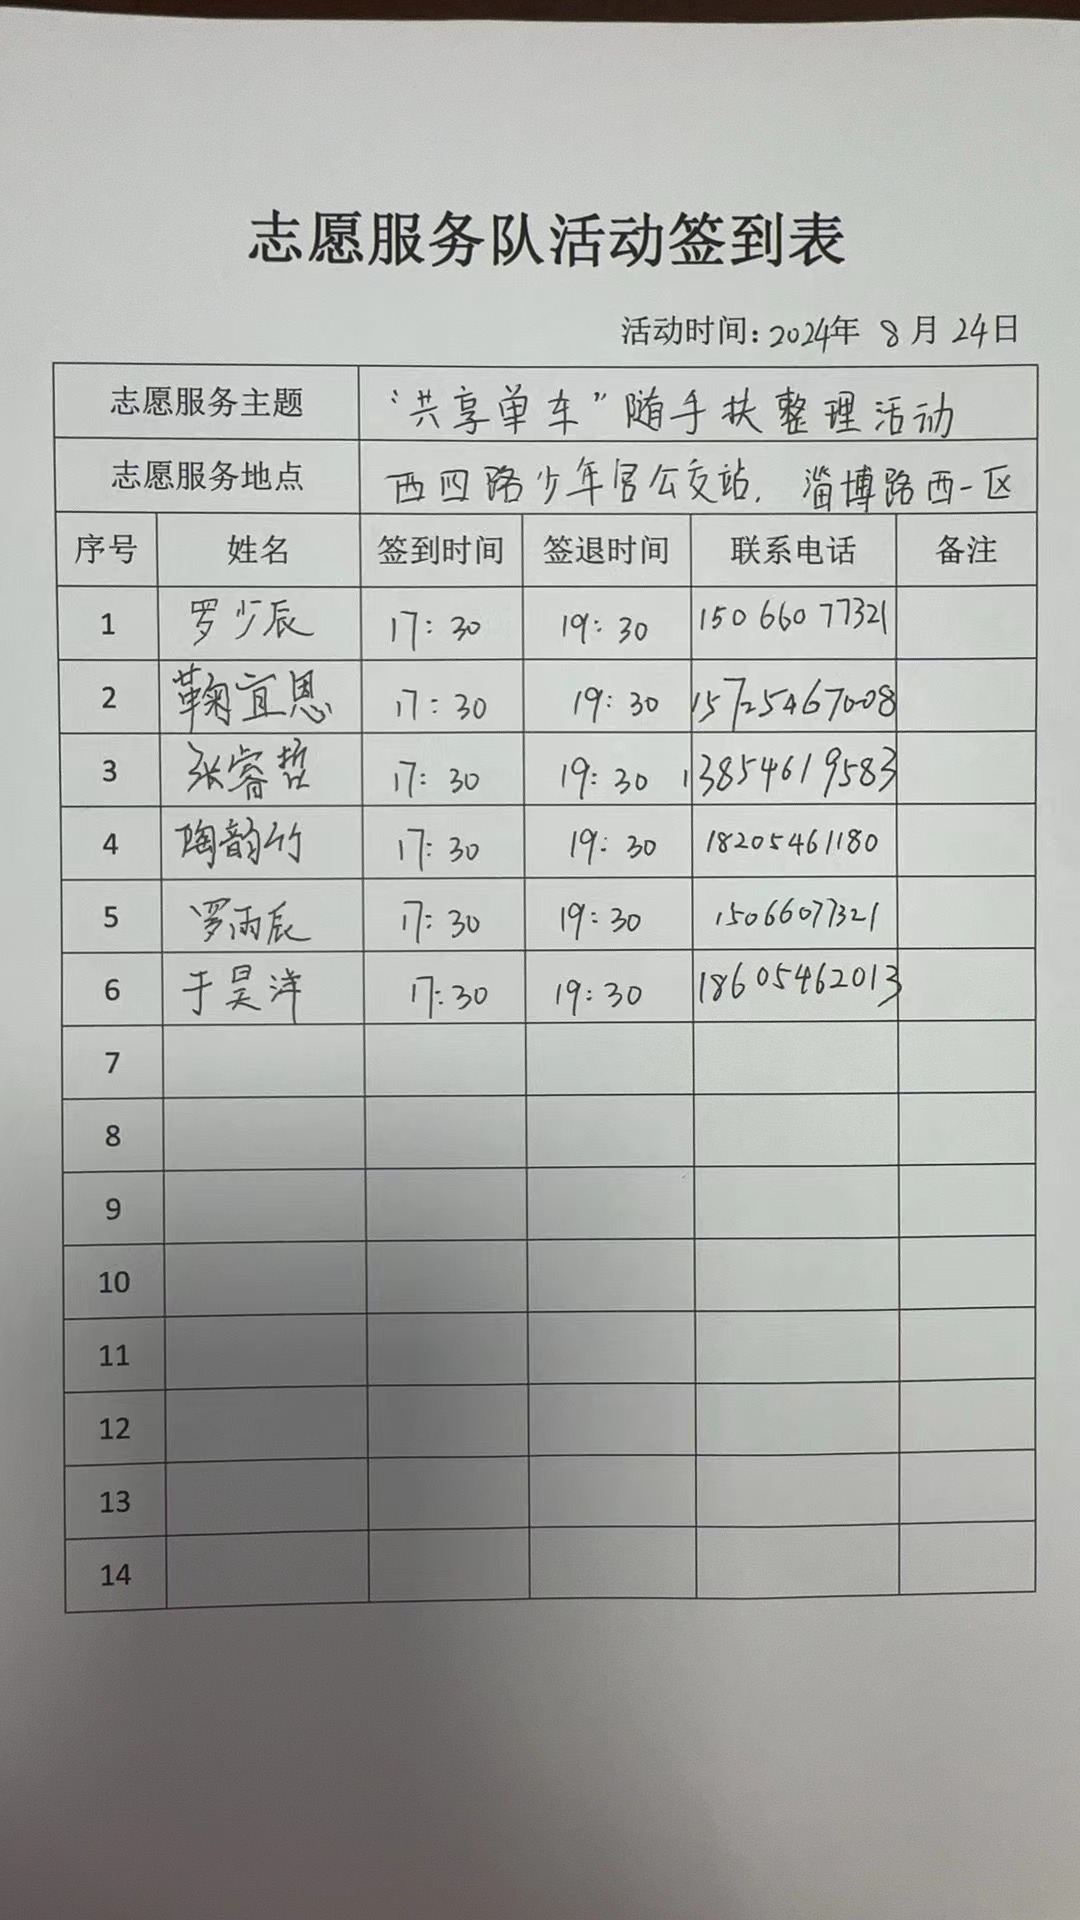 志愿服务队活动签到表
活动时间: 2024年 8月24日
志愿服务主题 “共享单车”随手扶整理活动
志愿服务地点 西四路少年宫公交站. 淄博路西一区
序号 姓名 签到时间 签退时间 联系电话 备注
1 罗少辰 17:30 19:30 15066077321
2 鞠宜恩 17:30 19:30 15725467008
3 张睿哲 17:30 19:30 13854619583
4 陶韵竹 17:30 19:30 18205461180
5 罗雨辰 17:30 19:30 15066077321
6 于昊洋 17:30 19:30 18605462013
7
8
9
10
11
12
13
14